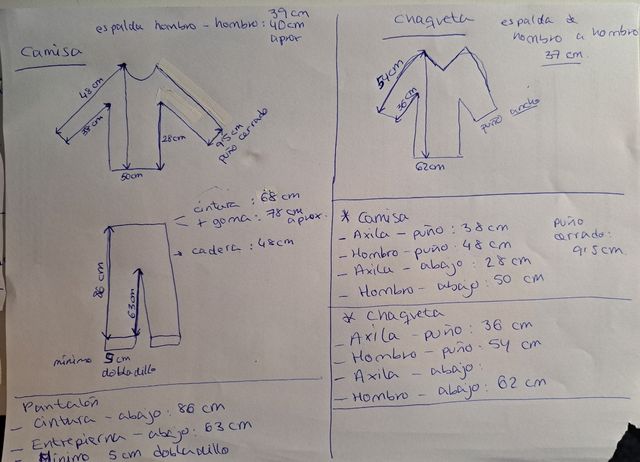 espalda hombro - hombro : 39 cm
40 cm
aprox
Camisa
48 cm
38 cm
28 cm
9'5 cm
puño cerrado
50 cm
cintura : 68 cm
+ goma : 78 cm
aprox.
cadera : 48 cm
86 cm
63 cm
mínimo 5 cm
dobladillo
Pantalón
- Cintura - abajo : 86 cm
- Entrepierna - abajo : 63 cm
- Mínimo 5 cm dobladillo
Chaqueta
espalda de
hombro a hombro
37 cm
54 cm
36 cm
puño ancho
62 cm
* Camisa
- Axila - puño : 38 cm
- Hombro - puño : 48 cm
- Axila - abajo : 28 cm
- Hombro - abajo : 50 cm
puño
cerrado:
9'5 cm
* Chaqueta
- Axila - puño : 36 cm
- Hombro - puño : 54 cm
- Axila - abajo :
- Hombro - abajo : 62 cm